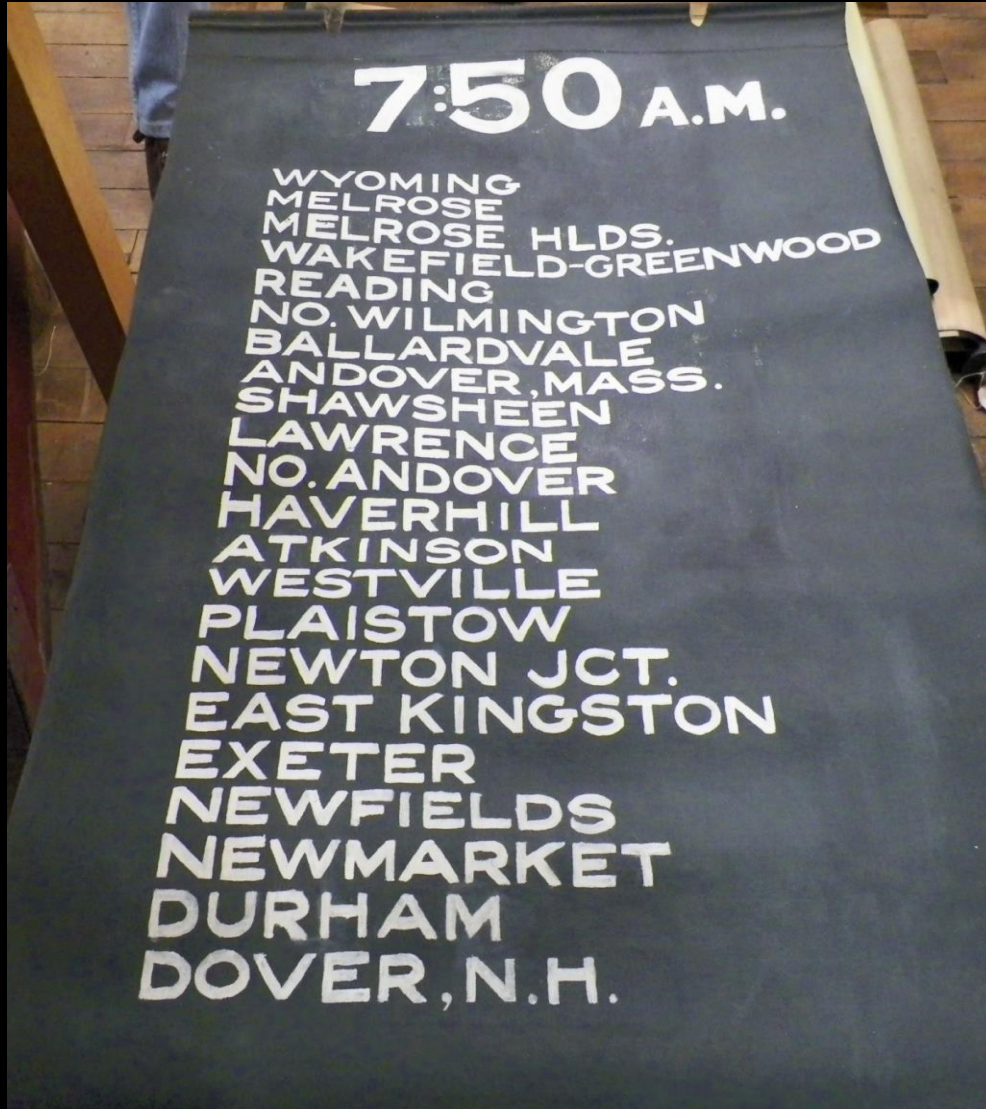 7:50 A.M.
WYOMING
MELROSE
MELROSE HLDS.
WAKEFIELD-GREENWOOD
READING
NO. WILMINGTON
BALLARDVALE
ANDOVER, MASS.
SHAWSHEEN
LAWRENCE
NO. ANDOVER
HAVERHILL
ATKINSON
WESTVILLE
PLAISTOW
NEWTON JCT.
EAST KINGSTON
EXETER
NEWFIELDS
NEWMARKET
DURHAM
DOVER, N.H.